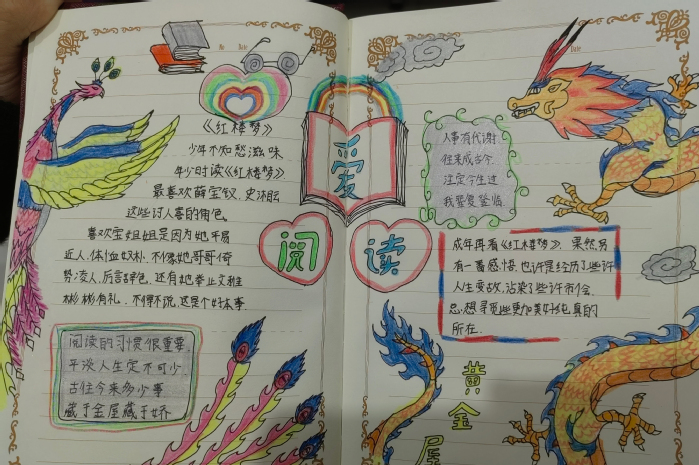 《红楼梦》
少年不知愁滋味
年少时读《红楼梦》
最喜欢薛宝钗、史湘云
这些讨人喜的角色。
喜欢宝姐姐是因为她平易
近人、体恤奴仆,不像她哥哥倚
势凌人、厉言辞色,还有她举止文雅
彬彬有礼,不得不说,这是个好本事.
阅读的习惯很重要
平淡人生定不可少
古往今来多少事
藏于金屋藏于娇
爱
阅
读
No
Date
Date
人事有代谢
往来成古今
注定今生过
我辈复登临
成年再看《红楼梦》,果然另
有一番感悟,也许是经历了些许
人生变故,沾染了些许市侩
总想寻觅些更加美好纯真的
所在.
黄
金
屋